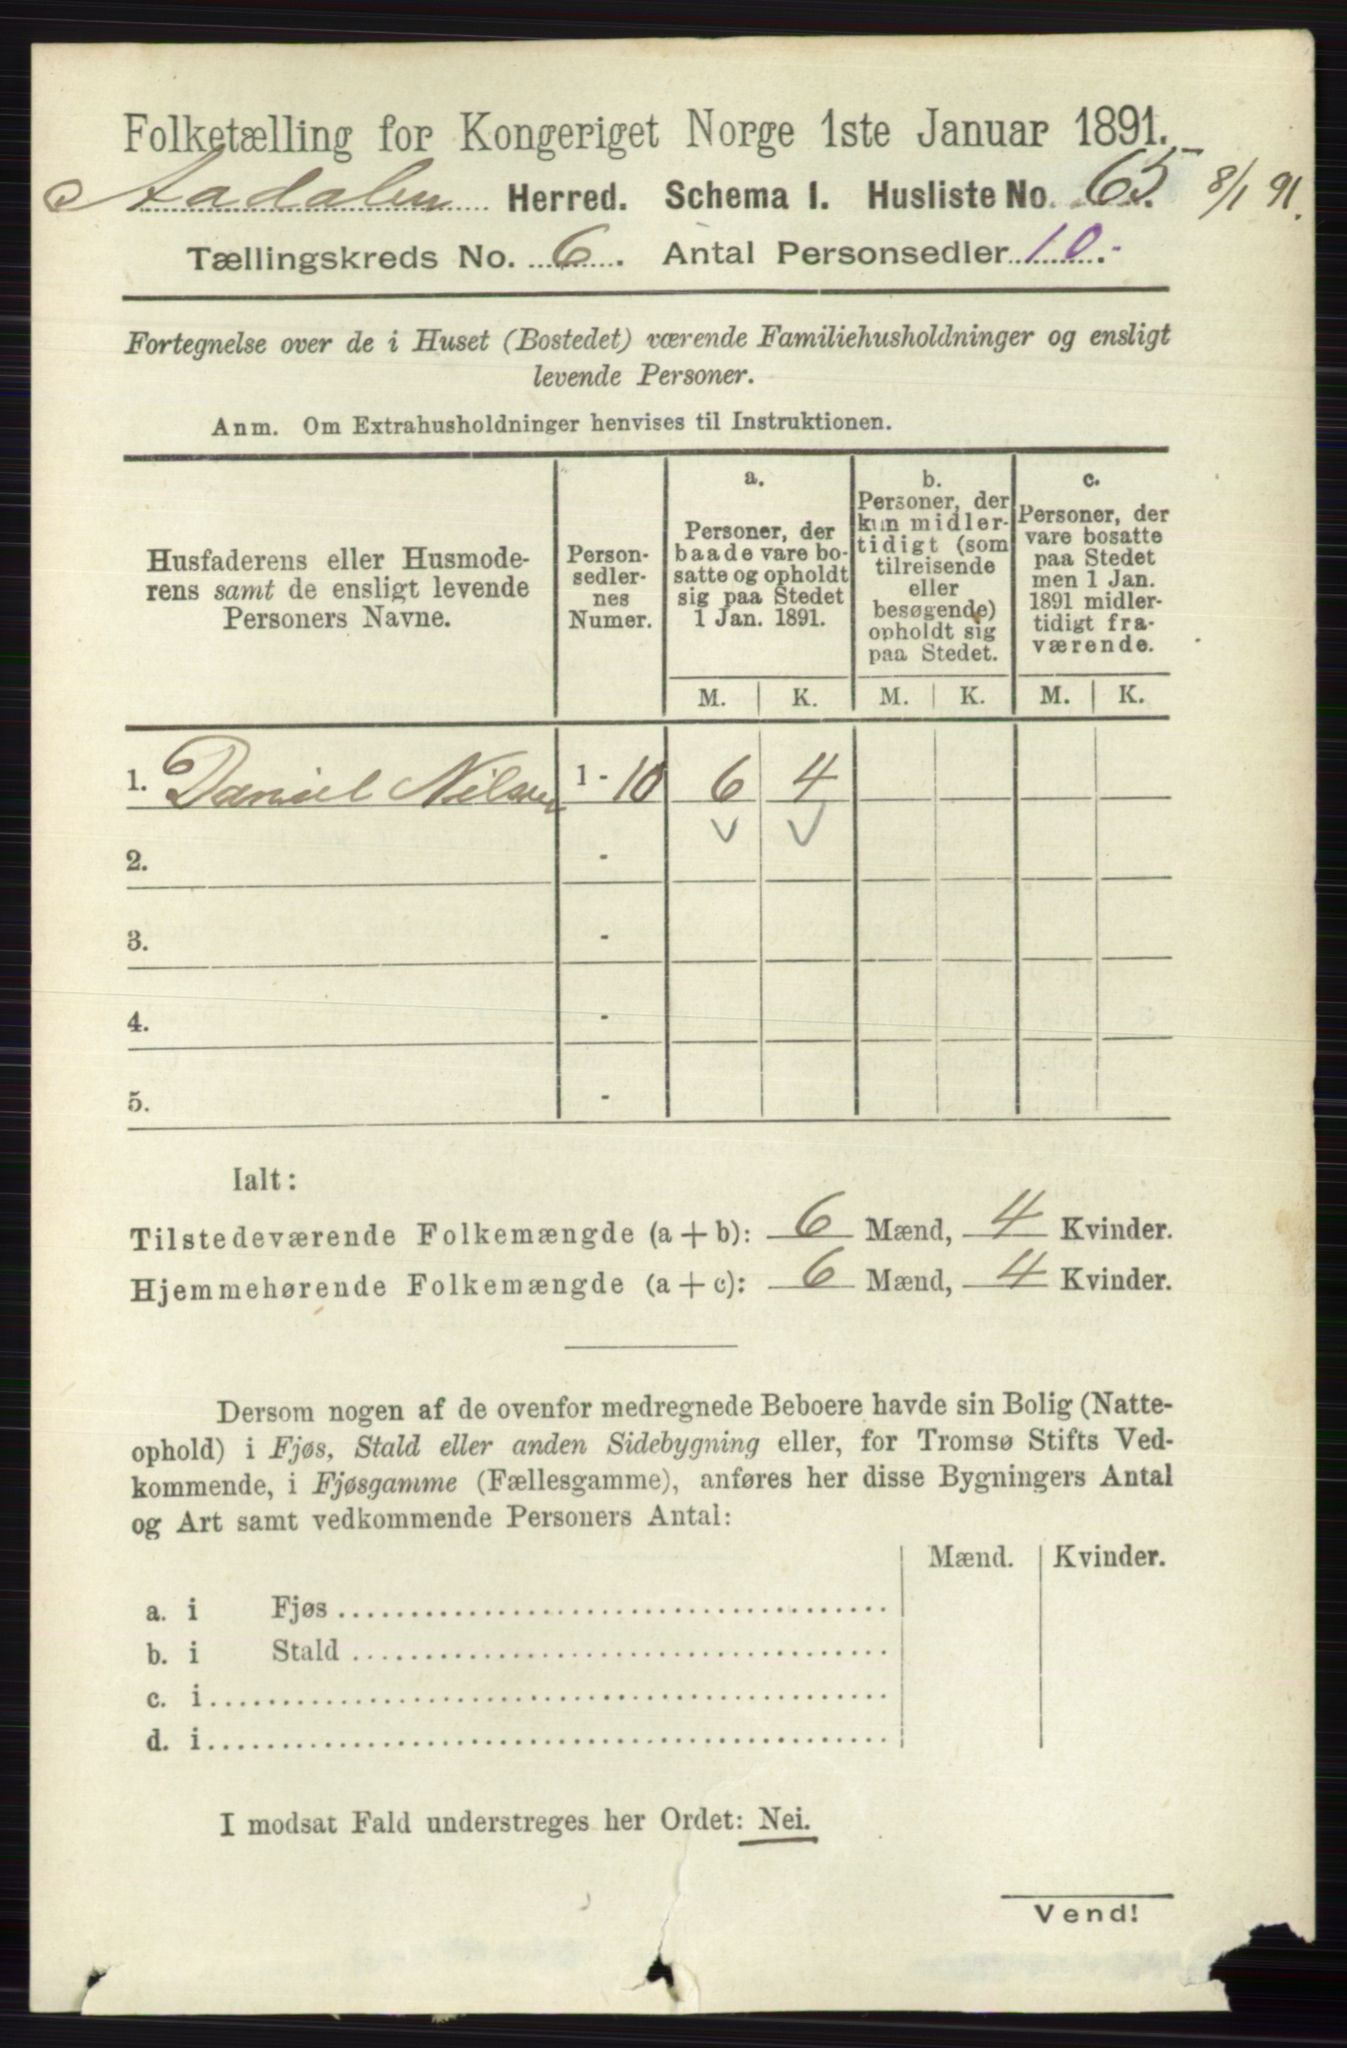 Folketælling for Kongeriget Norge 1ste Januar 1891.
Aadalen Herred. Schema I. Husliste No. 65. 8/1 91.
Tællingskreds No. 6. Antal Personsedler 10.
Fortegnelse over de i Huset (Bostedet) værende Familiehusholdninger og ensligt
levende Personer.
Anm. Om Extrahusholdninger henvises til Instruktionen.
Husfaderens eller Husmode-
rens samt de ensligt levende
Personers Navne.
Person-
sedler-
nes
Numer.
a.
Personer, der
baade vare bo-
satte og opholdt
sig paa Stedet
1 Jan. 1891.
b.
Personer, der
kun midler-
tidigt (som
tilreisende
eller
besøgende)
opholdt sig
paa Stedet.
c.
Personer, der
vare bosatte
paa Stedet
men 1 Jan.
1891 midler-
tidigt fra-
værende.
M. K. M. K. M. K.
1. Daniel Nilsen 1 - 10 6 4
2. -
3. -
4. -
5. -
Ialt:
Tilstedeværende Folkemængde (a + b): 6 Mænd, 4 Kvinder.
Hjemmehørende Folkemængde (a + c): 6 Mænd, 4 Kvinder.
Dersom nogen af de ovenfor medregnede Beboere havde sin Bolig (Natte-
ophold) i Fjøs, Stald eller anden Sidebygning eller, for Tromsø Stifts Ved-
kommende, i Fjøsgamme (Fællesgamme), anføres her disse Bygningers Antal
og Art samt vedkommende Personers Antal:
Mænd. Kvinder.
a. i Fjøs
b. i Stald
c. i
d. i
I modsat Fald understreges her Ordet: Nei.
Vend!